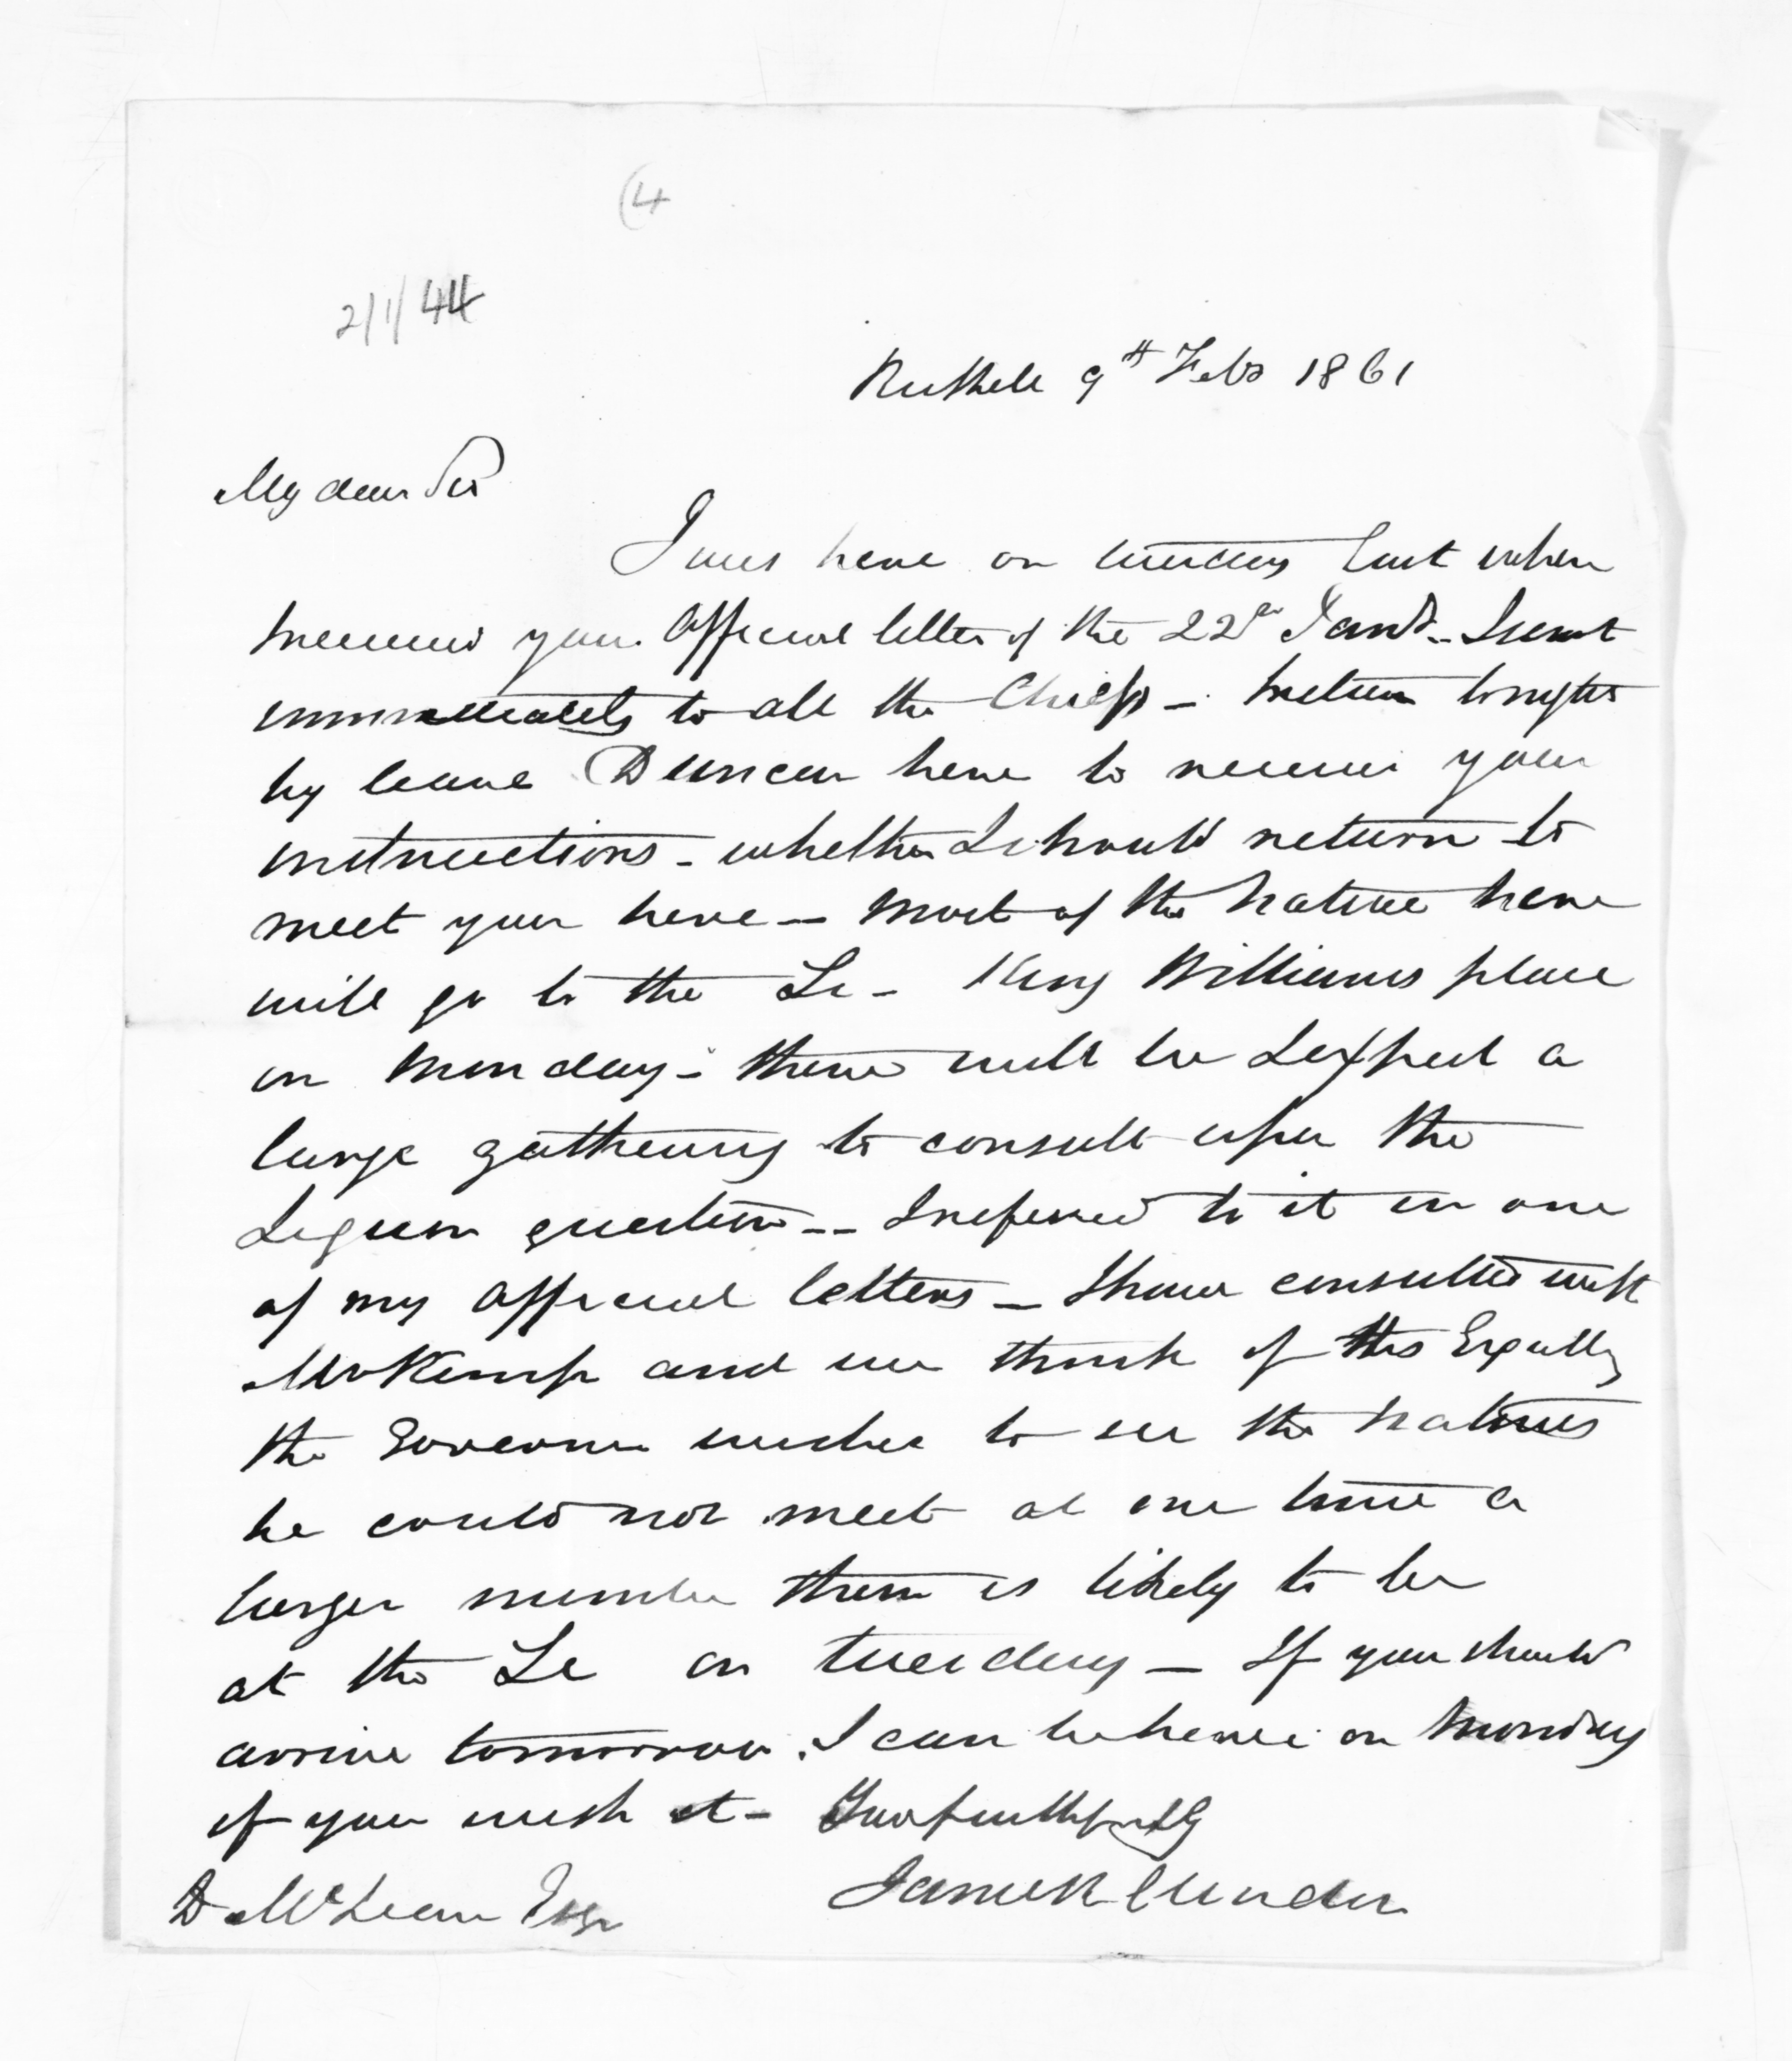 (4
2/1/44
Russell 9th Feby 1861
My dear Sir
I was here on tuesday last when
I received your Official letter of the 22d Jany - I sent
immediately to all the Chiefs - I return tonight
by leave Duncan here to receive your
instructions - whether I should return to
meet you here - Most of the Natives here
will go to the - King Williams place
on Monday - there will be I expect a
large gathering to consult upon the
question - I referred to it in one
of my Official letters - I have consulted with
Mr Kemp and we think if His Excelly
the Governor wishes to see the Natives
he could not meet at one time a
larger number than is likely to be
at the on tuesday - If you should
arrive tomorrow. I can be here on Monday
if you wish it - Yours faithfully
James R Clendon
D McLean Esqr